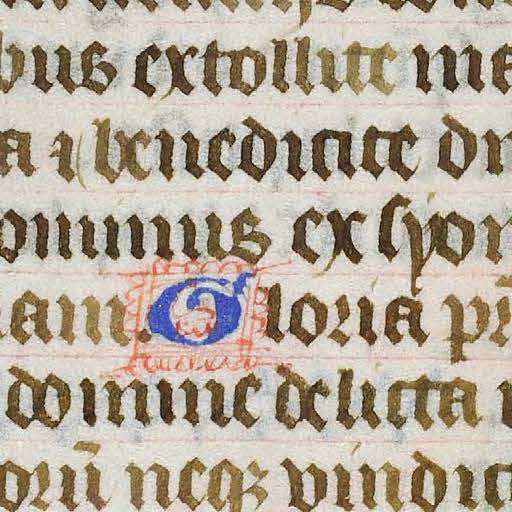 bus extollite ma
a ⁊ benedicite dn
ominus ex syon
am. Gloria pr̄
domine delicta
orū neqꝫ vindic